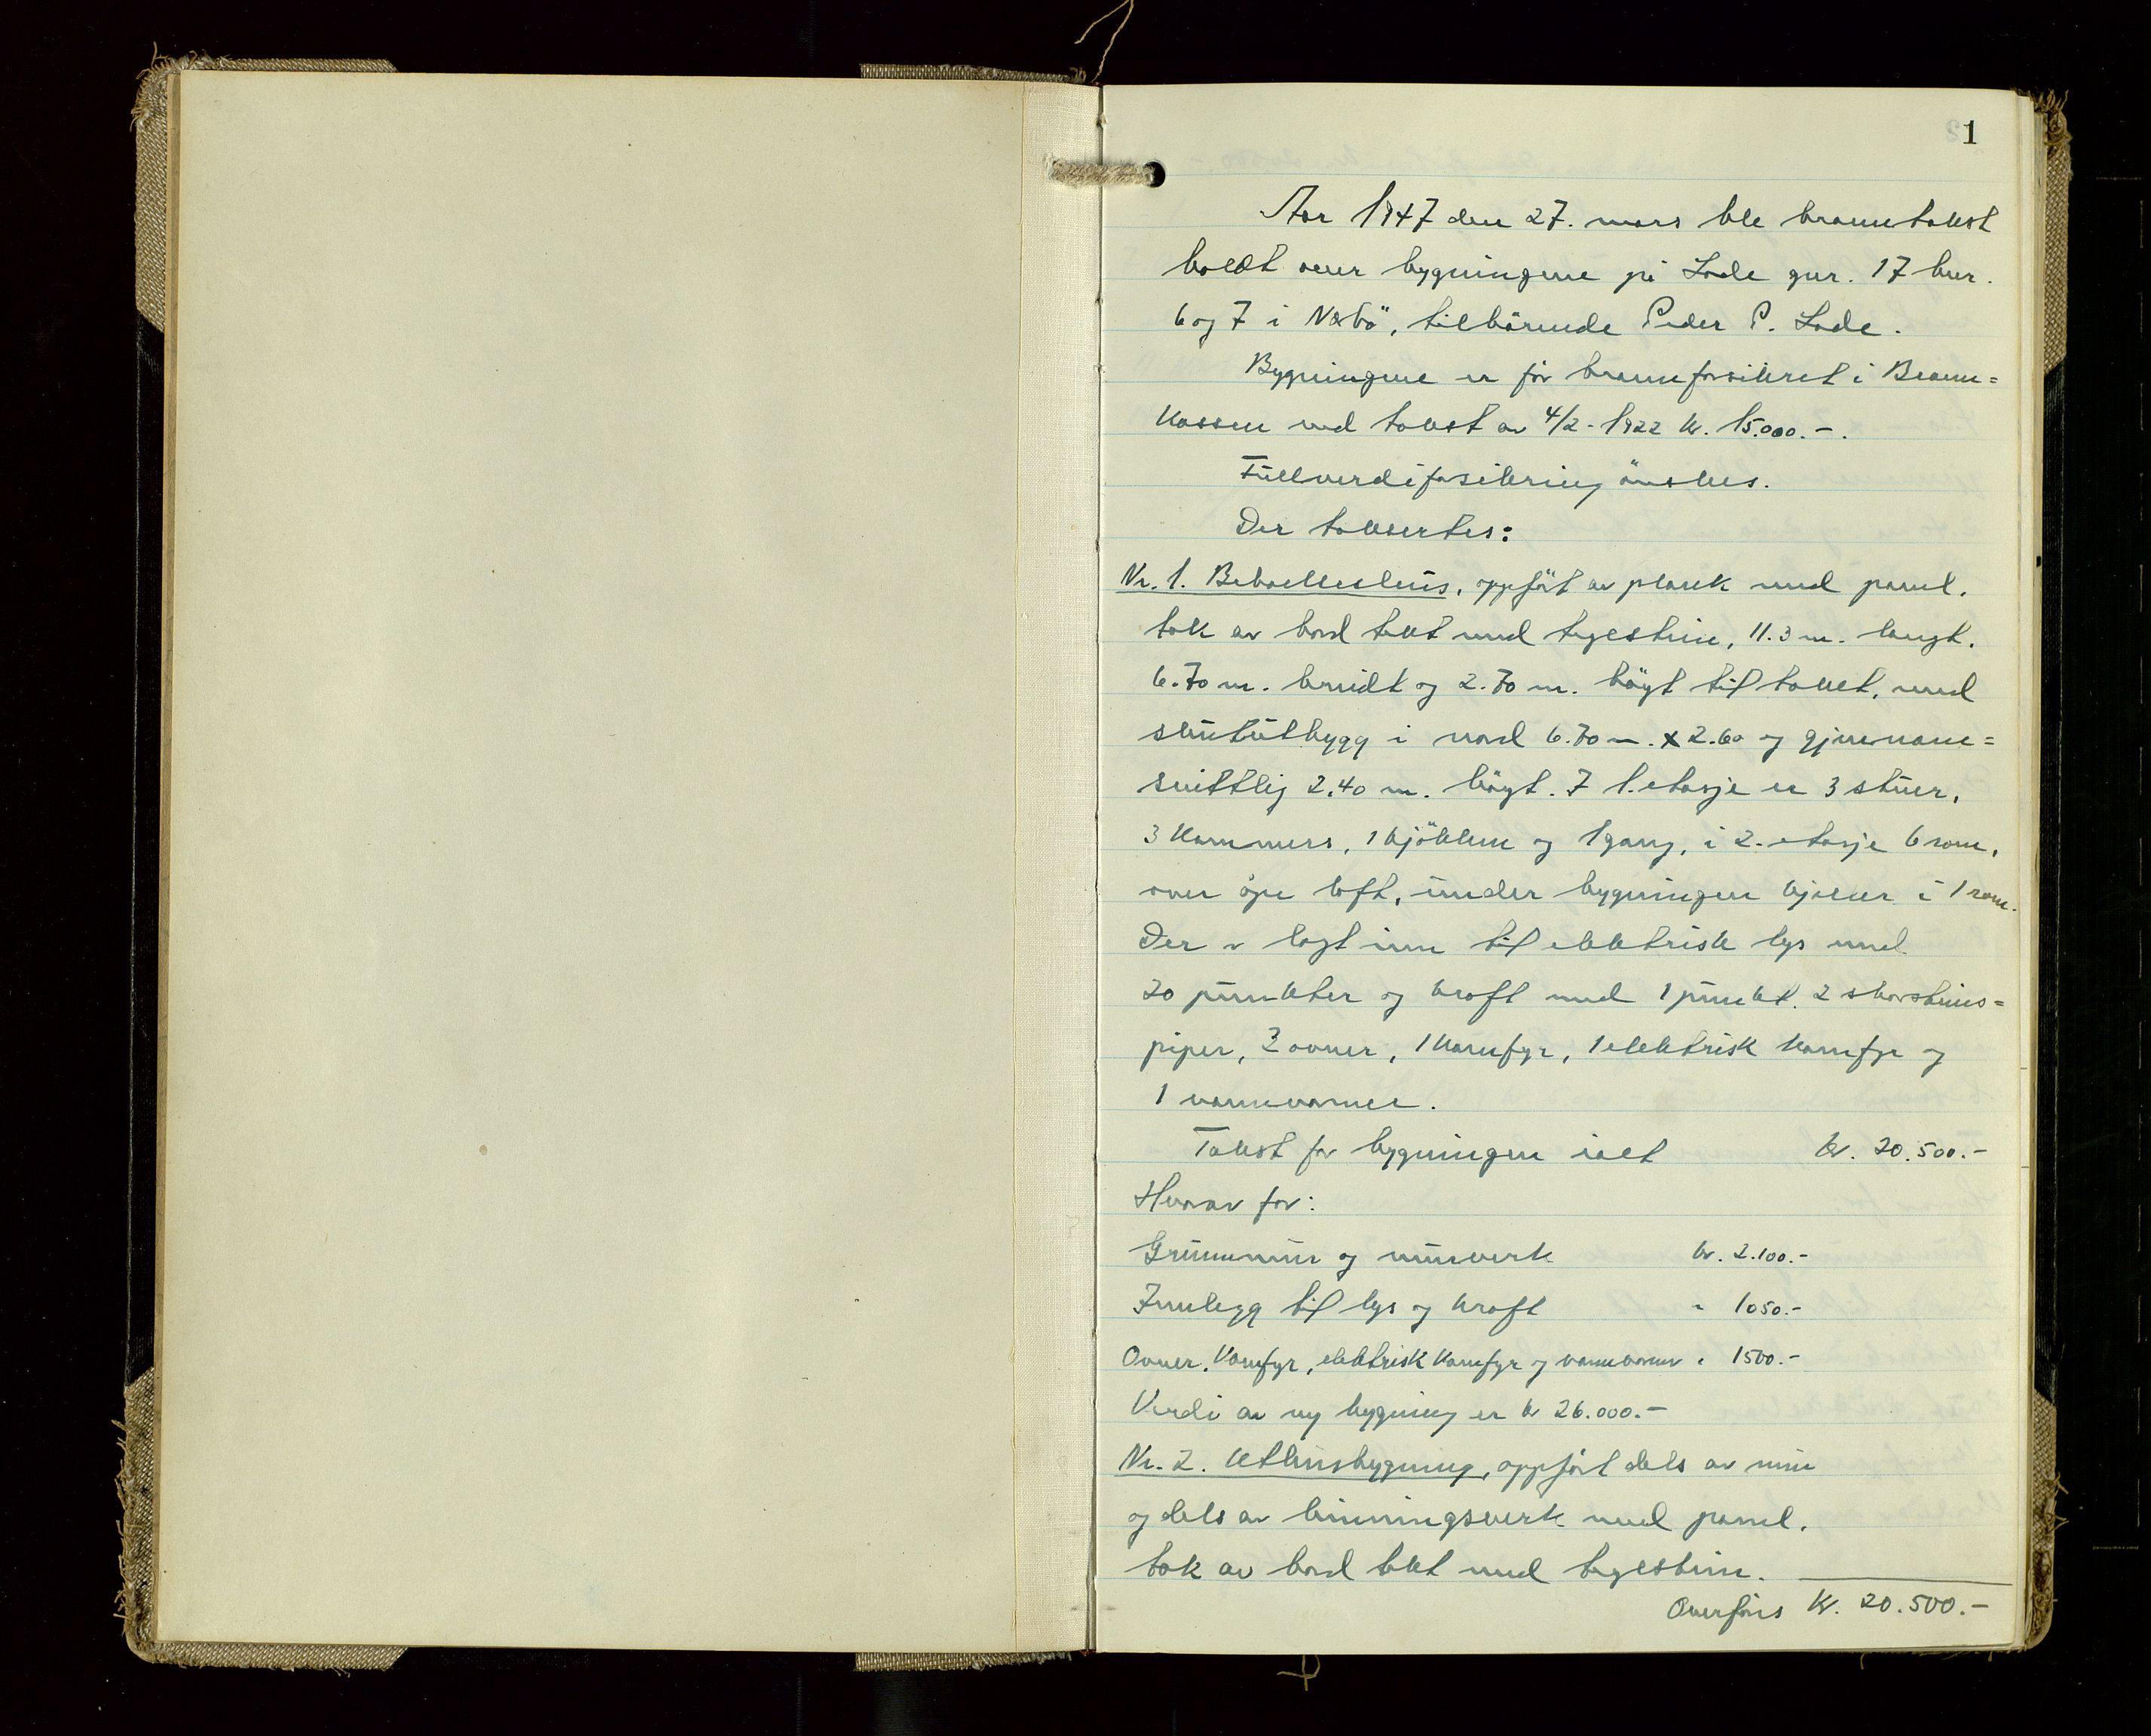 1
Aar 1947 den 27. mars ble branntakst
holdt over bygningene på Lode gnr. 17 bnr.
6 og 7 i Nærbö, tilhörende Peder P. Lode.
Bygningene er för brannforsikret i Brann=
kassen ved takst av 4/2-1922 kr. 15.000.-.
Fullverdiforsikring önskes.
Der taksertes:
Nr. 1. Beboelleshus, oppfört av plank med panel,
tak av bord tekt med teglstein, 11.3 m. langt,
6.70 m. breidt og 2.70 m. högt til taket, med
skutütbygg i nord 6.70 m. x 2.60 og gjennom=
snittlig 2.40 m. högt. I 1. etasje er 3 stuer,
3 kammers, 1 kjökken og 1 gang, i 2. etasje 6 rom,
over åpe loft, under bygningen kjeller i 1 rom.
Der er lagt inn til elektrisk lys med
20 punkter og kraft med 1 punkt. 2 skorsteins=
piper, 3 ovner, 1 komfyr, 1 elektrisk komfyr og
1 vannvarmer.
Takst for bygningen ialt kr. 20.500.-
Hvorav for:
Grunnmur og murverk kr. 2.100.-
Innlegg til lys og kraft " 1050.-
Ovner, komfyr, elektrisk komfyr og vannvarmer " 1500.-
Verdi av ny bygning er kr 26.000.-
Nr. 2. Uthusbygning, oppfört dels av mur
og dels av binningsverk med panel,
tak av bord tekt med teglstein.
Overföres kr. 20.500.-